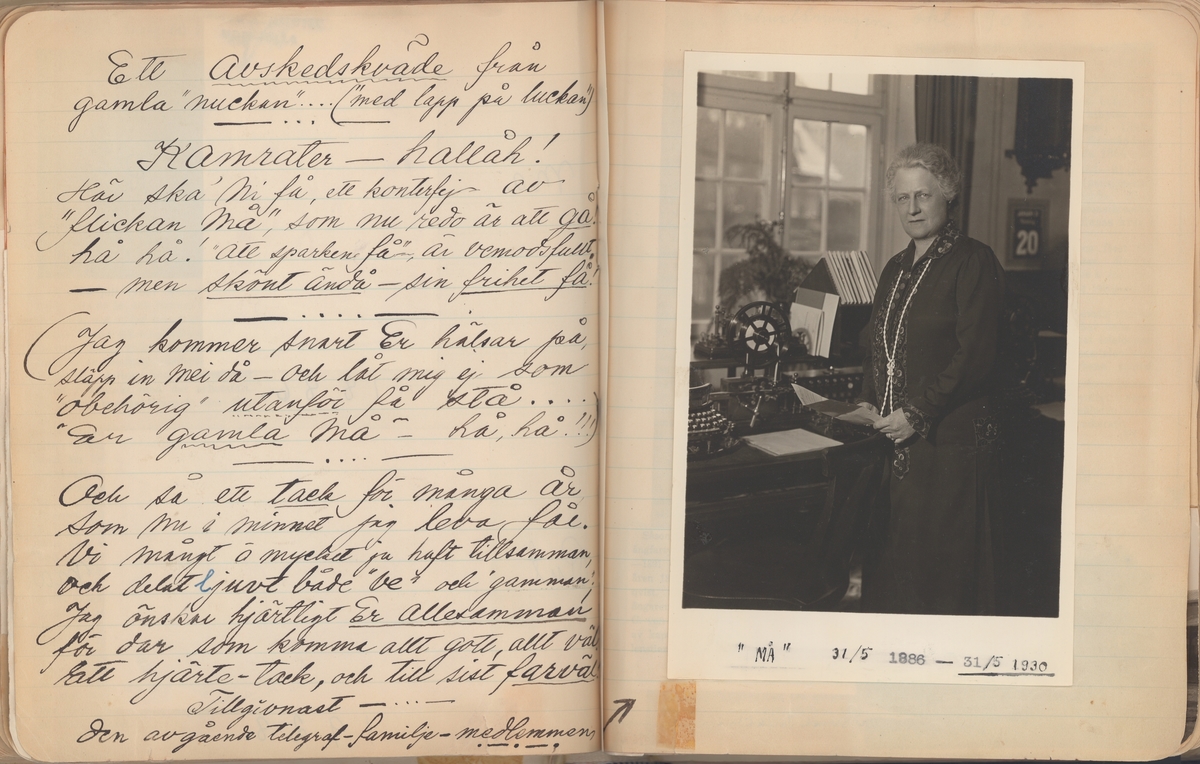 Ett Avskedskväde från
gamla "nuckan".... ("med lapp på luckan")
Kamrater — hallåh!
Här ska' Ni få, ett konterfej av
"flickan Må", som nu redo är att gå.
hå hå! "att sparken få", är vemodsfullt,
— men skönt ändå — sin frihet få!
(Jag kommer snart Er hälsar på,
släpp in mej då — och låt mig ej som
"obehörig" utanför få stå....
"Er gamla Må" — hå, hå!!!)
Och så ett tack för många år
som nu i minnet jag leva får.
Vi mångt o mycket ju haft tillsamman,
och delat ljuvt både "ve" och "gamman".
Jag önskar hjärtligt Er allesamman
för dar som komma allt gott, allt väl
Ett hjärte-tack, och till sist farväl
Tillgivnast —
Den avgående telegraf-familje-medlemmen,
20
"MÅ" 31/5 1886 — 31/5 1930